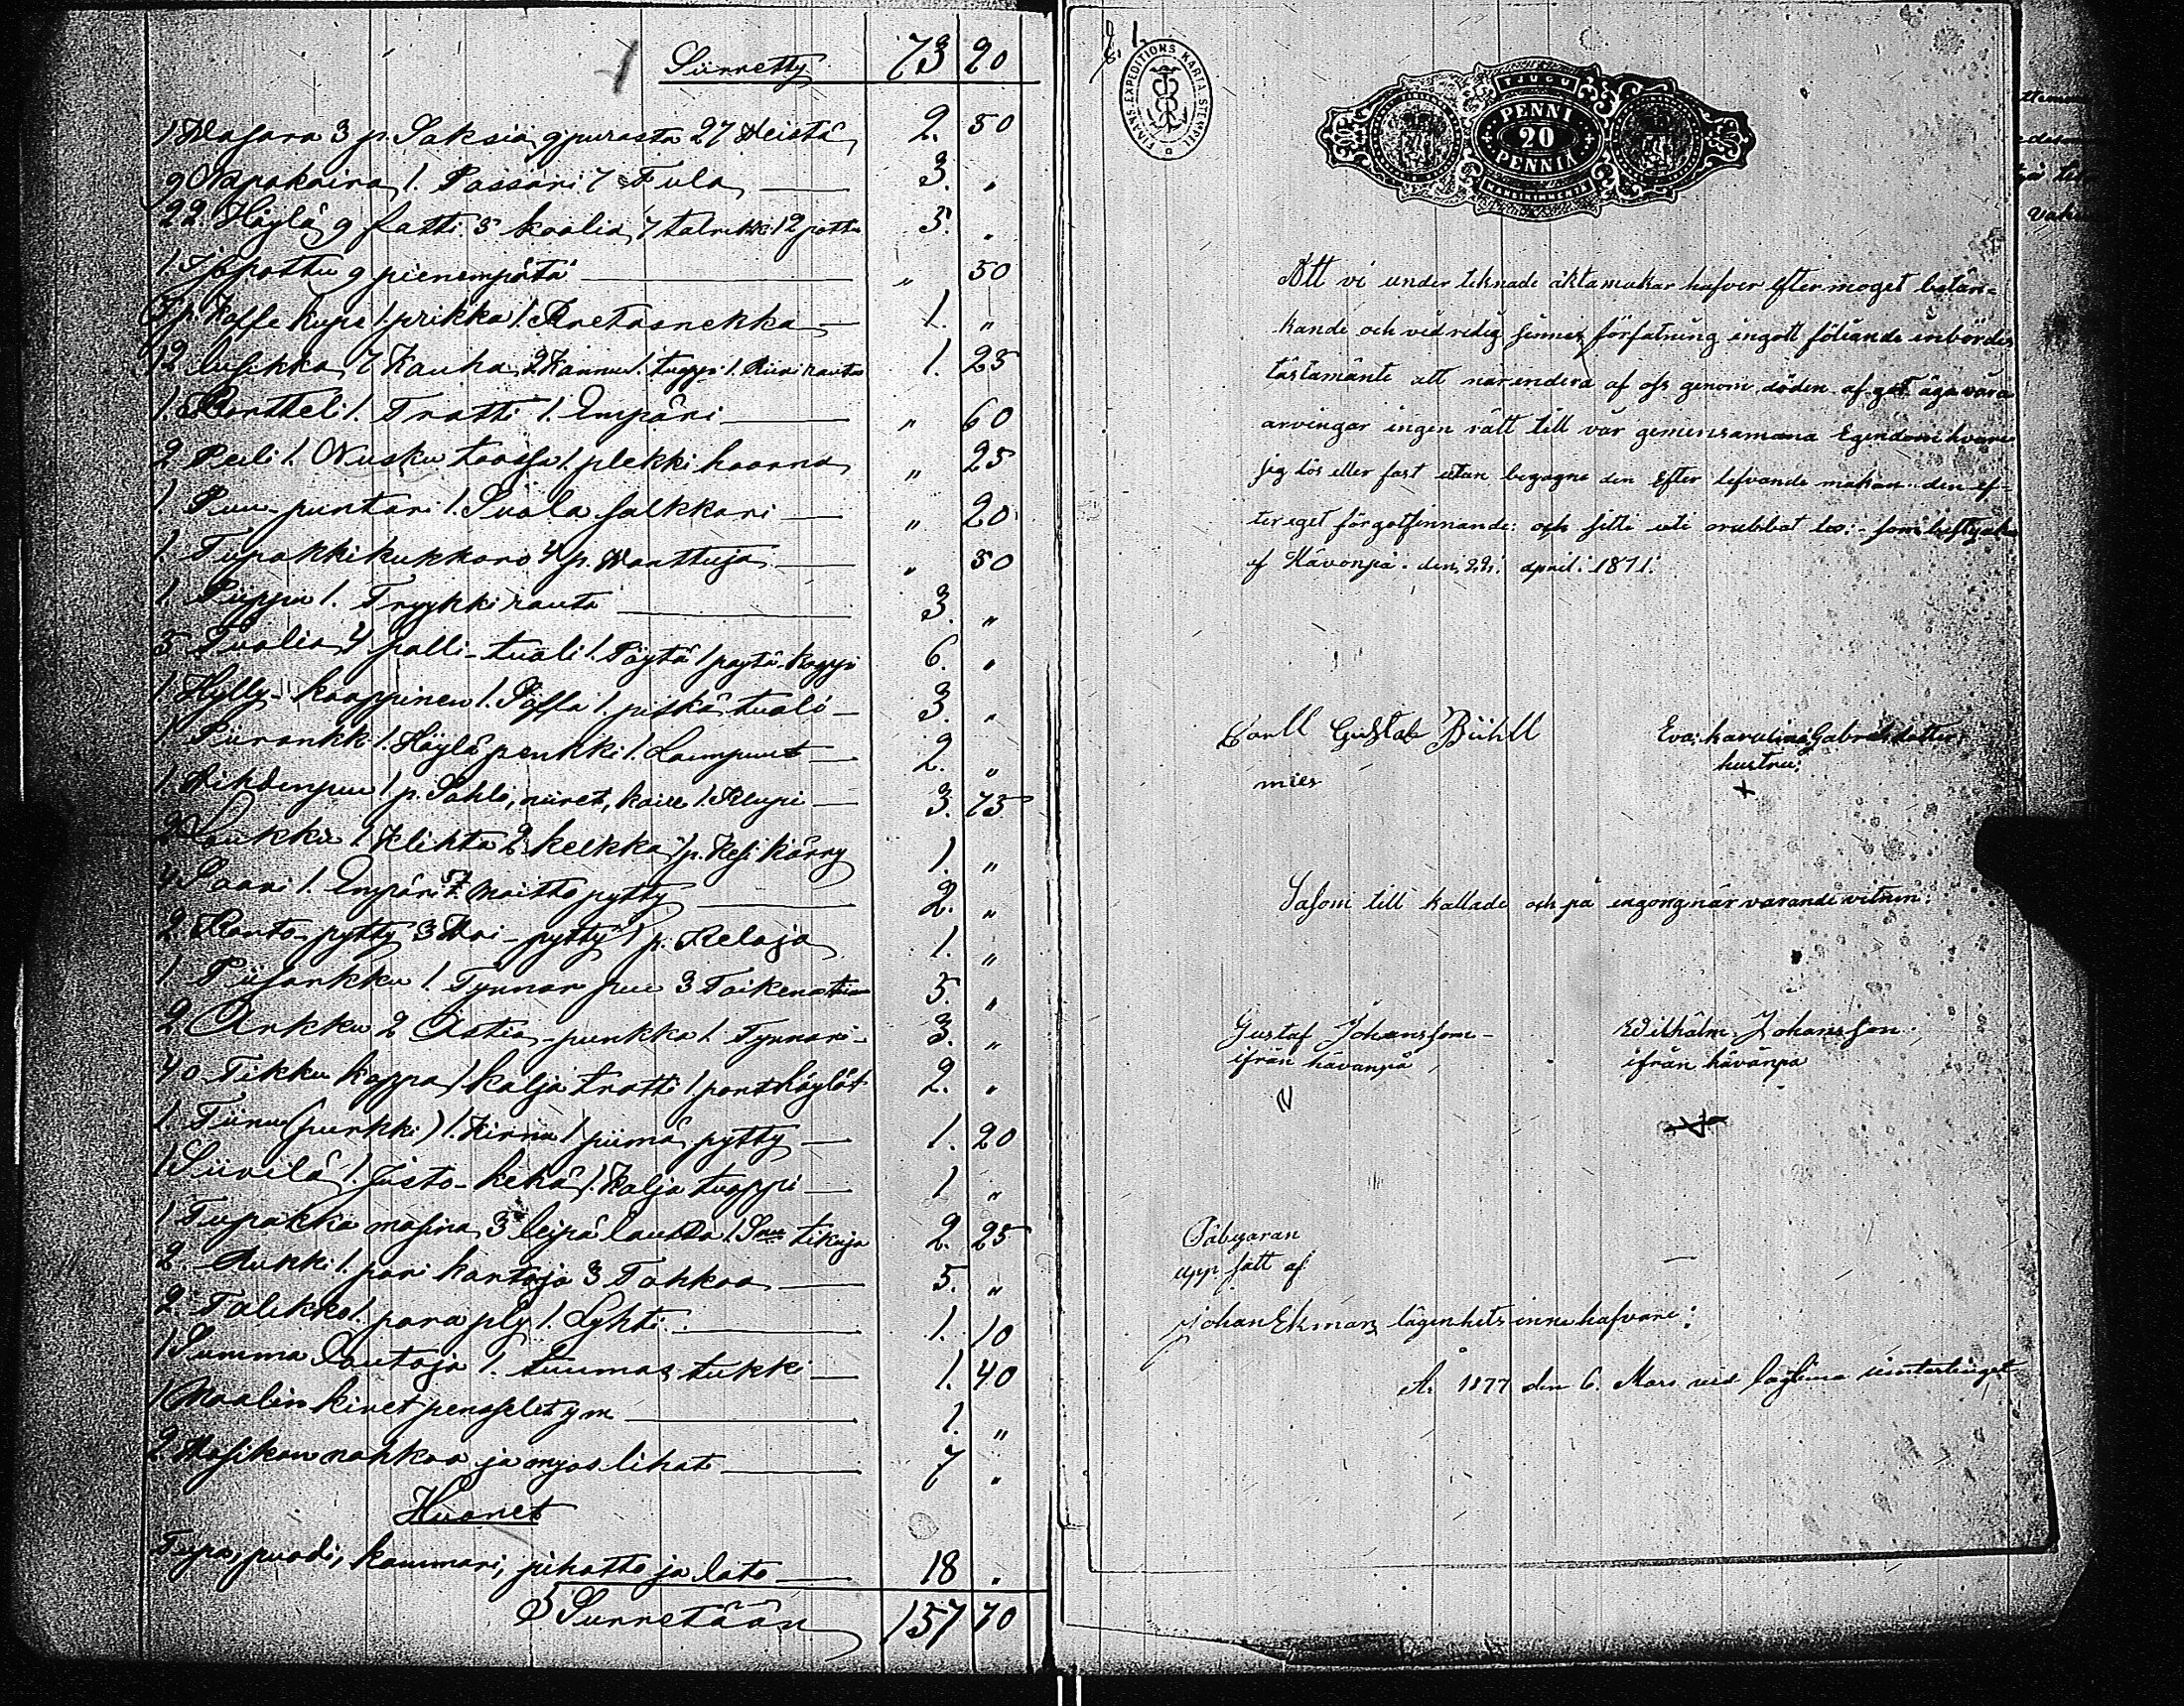 Siirretty 73 20
1 Wasara 3 p. Saksia, 9 purasta 27 Weistä 2. 50
9 Napakaira, 1. Passari 7 Fula 3. "
22. Höylä 9 fatti 3 koolia, 7 talrikki 12 pottu 3. "
1. Iso pottu 9 pienempätä " 50
5 p. Koffe kupi 1 prikka 1. 1. "
12 lusikka, 7 Kauha, 2 Kannu 1. tuoppi 1. Riivi rauta 1. 25
1. Kortteli 1. Tratti 1. Empäri " 60
2 Peili 1. Nusku toossa 1. plekki haarna " 25
1 Puu-puntari 1. Suola salkkari " 20
1. Tupakkikukkaro 4 p. Wanttuja " 50
1. Piippu 1. Tryykki rauta 3. "
5 Tuolia, 4 palli-tuoli 1. Pöytä 1 pöytä-kappi 6. "
1. Hylly-kaappinen 1. Soffa 1. pitkä tuoli 3. "
1. Piironkki 1. Höylä penkki 1. Loimpuut 2. "
1. p. Pahlo, niiret, kaire 1. Klupi 3. 75
2 Laukku 1. Klihta 2 kelkka, 1 p. Kesi kärry 1. "
4 Saavi 1. Empäri 7. Maitto pytty 2. "
2 Ranto-pytty 3 Woi-pytty 1 p. Keloja 1. "
1 Piisankku 1. Tynnar puu 3 Taikenatiinu 5. "
2 Arkku 2 Astia-punkka 1. Tynnari 3. "
40 Tikku koppa, 1 kalja tratti 1. pontthöylät 2. "
1 Tiinu (purkki) 1. Kirnu 1 piimä pytty 1. 20
1 Siivilä, 1. Justo-kehä, 1. Kalja tuoppi 1 "
1 Tupakka masina, 3 leipä lautta 1. tikuja 2. 25
2. Rukki 1. pari kartoja 3 Tahkoa 5. "
2 Talikko 1. para ply 1. Lyhti 1. 10
1 Summa Rautoja 1. tuumas tukki 1. 40
1 Maalin kivet penselit y m 1. "
2 Wasikan nahkaa ja myös lihat 7 "
Huonet
Tupa, puodi, kammari, pihatto ja lato 18 "
Siirretään 157 70
FINANS-EXPEDITIONS KARTA. STEMPEL
TJUGU
PENNI
20
PENNIÄ
KAKSIKIMMENTÄ
Att vi under teknade äktamakar hafver efter moget betän=
kande och vid redig sinnes författning ingott föliande inbördes
tästamänte att när endera af oss genom döden af gåt äga våra
arvingar ingen rätt till vår gemensamma Egendom hvare
sig lös eller fast utan begagne den Efter lefvande makan den ef-
ter eget för gotfinnande: och sitti uti orubbat bo:- som bestyrkes
af Hävonpä. den 22. april: 1871:
Carll Gustaf Bühll Eva: karulina Gabrielsdotter:
mies hustru:
+
Såsom till kallade och på engong när varande vitnen:
Gustaf Johansson - Wilhälm Johansson.
ifrån hävanpä ifrån hävänpä
N
Påbegäran
upp satt af
Johan Ekman lägenhets innehafvare:
År 1877 den 6. Mars vid lagtima vintertinget